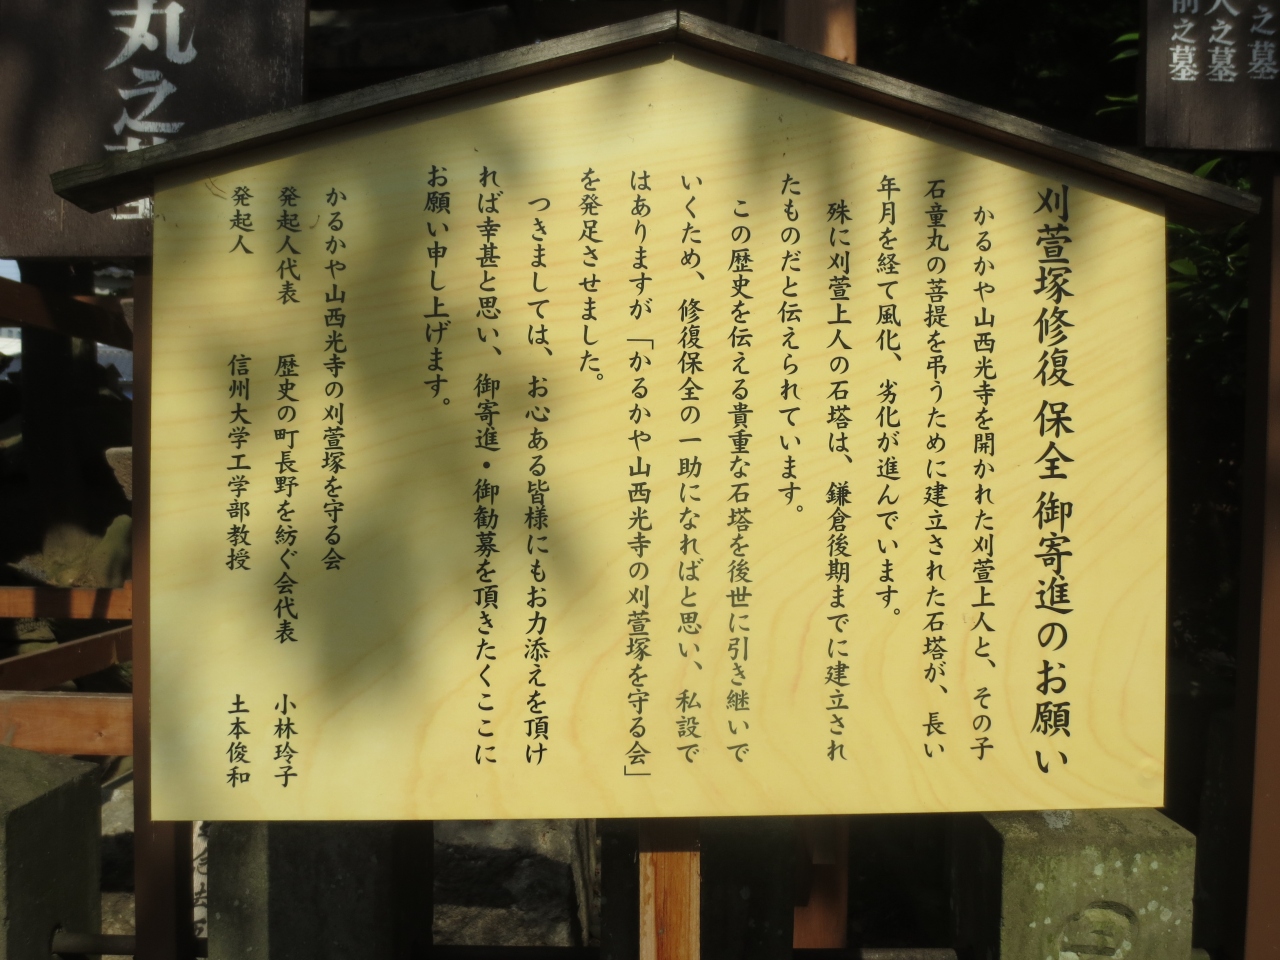 刈萱塚修復 保全 御寄進のお願い
かるかや山西光寺を開かれた刈萱上人と、その子
石童丸の菩提を弔うために建立された石塔が、長い
年月を経て風化、劣化が進んでいます。
殊に刈萱上人の石塔は、鎌倉後期までに建立され
たものだと伝えられています。
この歴史を伝える貴重な石塔を後世に引き継いで
いくため、修復保全の一助になればと思い、私設で
はありますが「かるかや山西光寺の刈萱塚を守る会」
を発足させました。
つきましては、お心ある皆様にもお力添えを頂け
れば幸甚と思い、御寄進・御勧募を頂きたくここに
お願い申し上げます。
かるかや山西光寺の刈萱塚を守る会
発起人代表 歴史の町長野を紡ぐ会代表 小林玲子
発起人 信州大学工学部教授 土本俊和
之墓
人之墓
前之墓
丸之